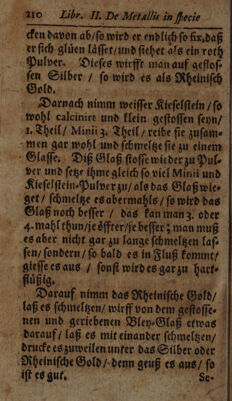 210 Libr. II. De Metallis in specie
cken davon ab/so wird er endlich so fix, daß
er sich glüen lässet/und siehet als ein roth
Pulver. Dieses wirfft man auff geflos-
sen Silber / so wird es als Rheinisch
Gold.
Darnach nimm weisser Kieselstein / so
wohl calciniet und klein gestossen seyn/
1. Theil / Minii 3. Theil / reibe sie zusam-
men gar wohl und schmeltze sie zu einem
Glasse. Diß Glaß stosse wieder zu Pul-
ver und setze ihme gleich so viel Minii und
Kieselstein-Pulver zu/als das Glaß wie-
get / schmeltze es abermahls / so wird das
Glaß noch besser / das kan man 3. oder
4. mahl thun/je öffter/je besser; man muß
es aber nicht gar zu lange schmeltzen las-
sen/sondern / so bald es in Fluß kommt/
giesse es aus / sonst wird es gar zu hart-
flüßig.
Darauf nimm das Rheinische Gold/
laß es schmeltzen/wirff von dem gestosse-
nen und geriebenen Bley-Glaß etwas
darauf / laß es mit einander schmeltzen/
drucke es zuweilen unter das Silber oder
Rheinische Gold /-denn geuß es aus / so
ist es gut.
Se-